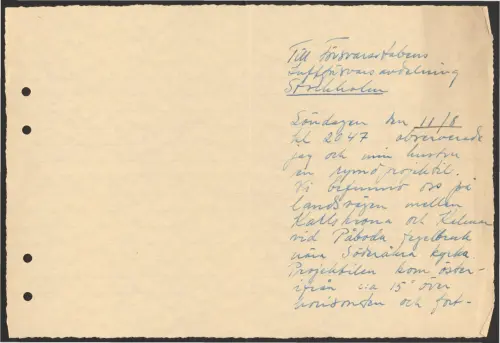 Till Försvarsstabens
Luftförsvarsavdelning
Stockholm
Söndagen den 11/8
kl 2047 observerade
jag och min hustru
en rymdprojektil.
Vi befunno oss på
landsvägen mellan
Karlskrona och Kalmar
vid Påboda tegelbruk
nära Söderåkra kyrka.
Projektilen kom öster-
ifrån c:a 15° över
horisonten och fort-